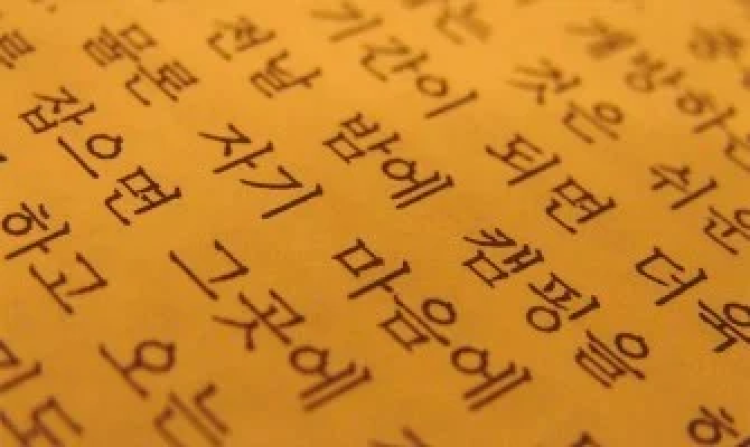 개방하는
는 것은 쉬운
기간이 되면 더욱
전날 밤에 캠핑을
물론 자기 마음에
잡으면 그곳에
하고 오는
도